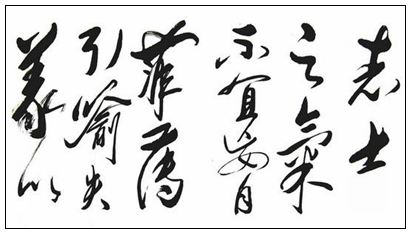 志士
之氣
不宜妄自
菲薄
引喻失
義以